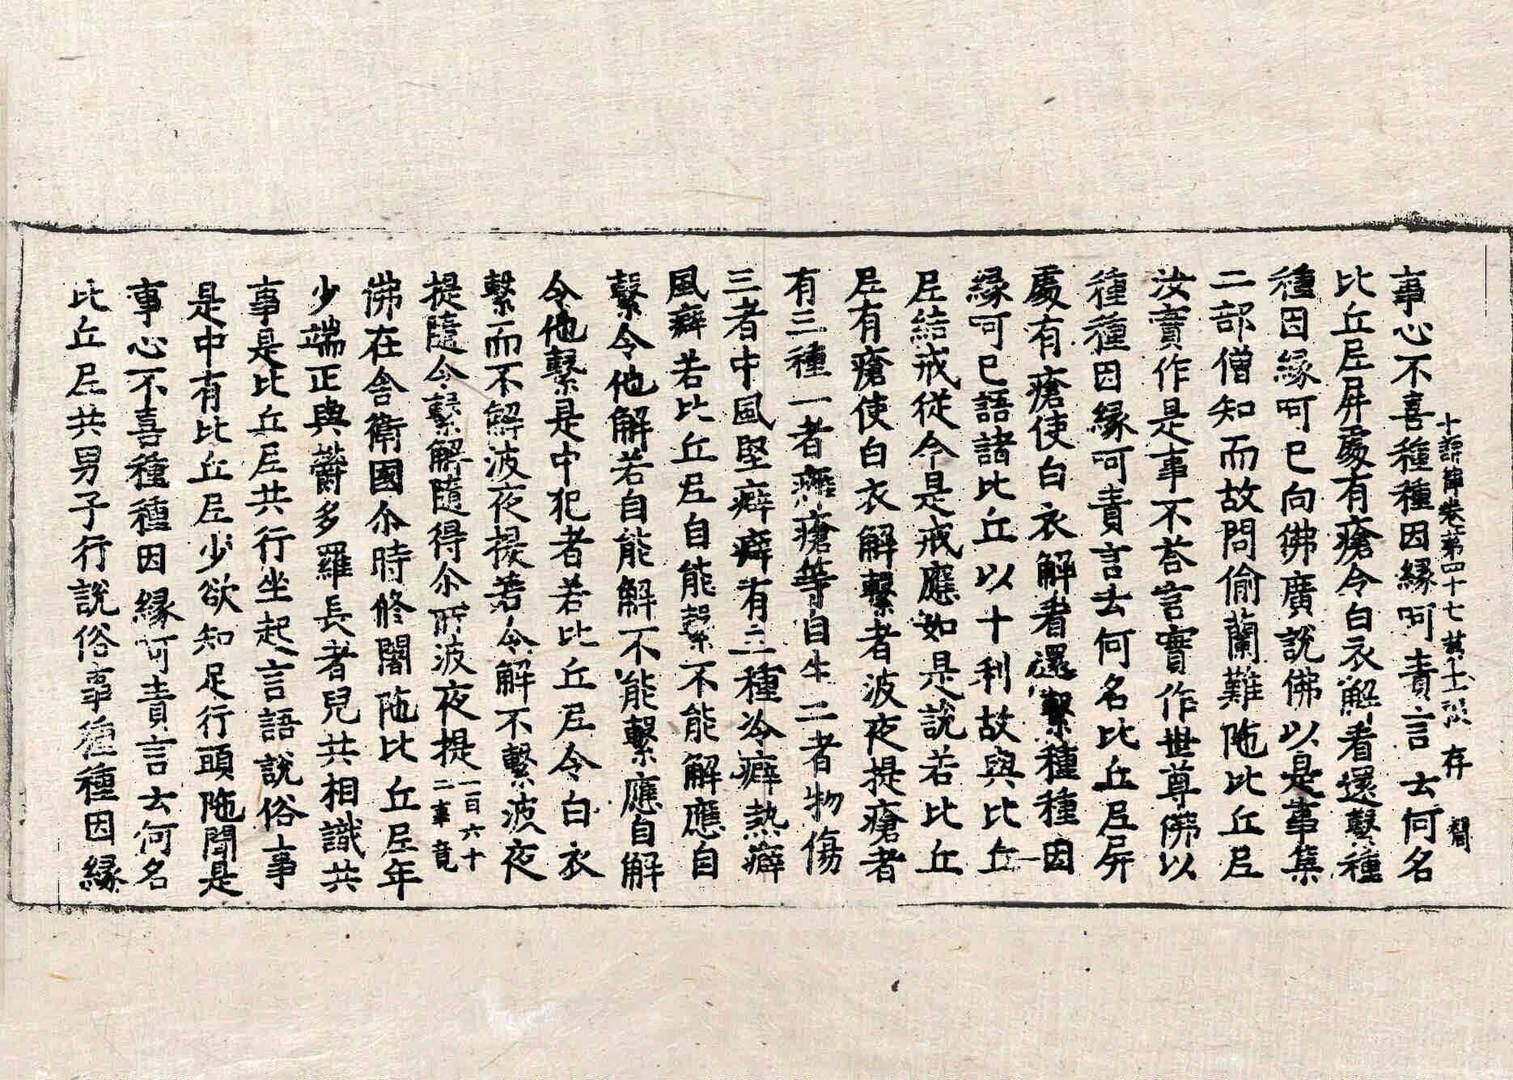 事心不喜種種因緣呵責言云何名
十誦律卷第四十七 第十二張 存
比丘尼屏處有瘡令白衣解者還繫種
種因緣呵已向佛廣說佛以是事集
二部僧知而故問偷蘭難陁比丘尼
汝實作是事不荅言實作世尊佛以
種種因緣呵責言云何名比丘尼屏
處有瘡使白衣解者還繫種種因
緣呵已語諸比丘以十利故與比丘
尼結戒從今是戒應如是說若比丘
尼有瘡使白衣解繫者波夜提瘡者
有三種一者癰瘡等自生二者物傷
三者中風堅癖癖有三種冷癖熱癖
風癖若比丘尼自能繫不能解應自
繫令他解若自能解不能繫應自解
令他繫是中犯者若比丘尼令白衣
繫而不解波夜提若令解不繫波夜
提隨令繫解隨得尒所波夜提一百六十二事竟
佛在舍衛國尒時修闍陁比丘尼年
少端正與欝多羅長者兒共相識共
事是比丘尼共行坐起言語說俗事
是中有比丘尼少欲知足行頭陁聞是
事心不喜種種因緣呵責言云何名
比丘尼共男子行說俗事種種因緣